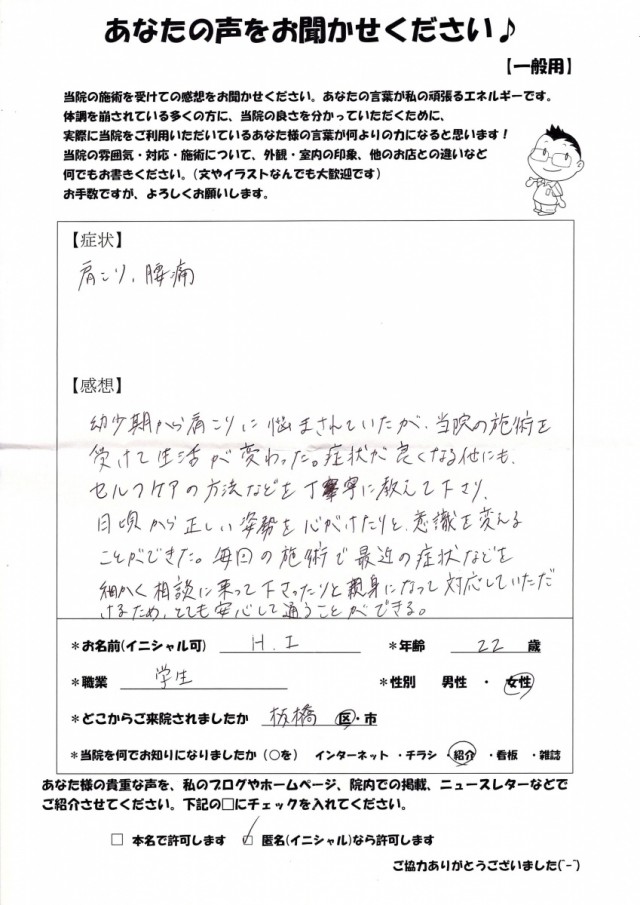 あなたの声をお聞かせください♪
【一般用】
当院の施術を受けての感想をお聞かせください。あなたの言葉が私の頑張るエネルギーです。
体調を崩されている多くの方に、当院の良さを分かっていただくために、
実際に当院をご利用いただいているあなた様の言葉が何よりの力になると思います!
当院の雰囲気・対応・施術について、外観・室内の印象、他のお店との違いなど
何でもお書きください。(文やイラストなんでも大歓迎です)
お手数ですが、よろしくお願いします。
【症状】
肩こり、腰痛
【感想】
幼少期から肩こりに悩まされていたが、当院の施術を
受けて生活が変わった。症状が良くなる他にも、
セルフケアの方法などを丁寧に教えて下さり、
日頃から正しい姿勢を心がけたりと、意識を変える
ことができた。毎回の施術で最近の症状などを
細かく相談に乗って下さったりと親身になって対応していただ
けるため、とても安心して通うことができる。
*お名前(イニシャル可) H.I *年齢 22 歳
*職業 学生 *性別 男性 ・ 女性
*どこからご来院されましたか 板橋 区・市
*当院を何でお知りになりましたか(○を) インターネット ・チラシ ・紹介 ・看板 ・雑誌
あなた様の貴重な声を、私のブログやホームページ、院内での掲載、ニュースレターなどで
ご紹介させてください。下記の□にチェックを入れてください。
□ 本名で許可します ☑ 匿名(イニシャル)なら許可します
ご協力ありがとうございました(^-^)